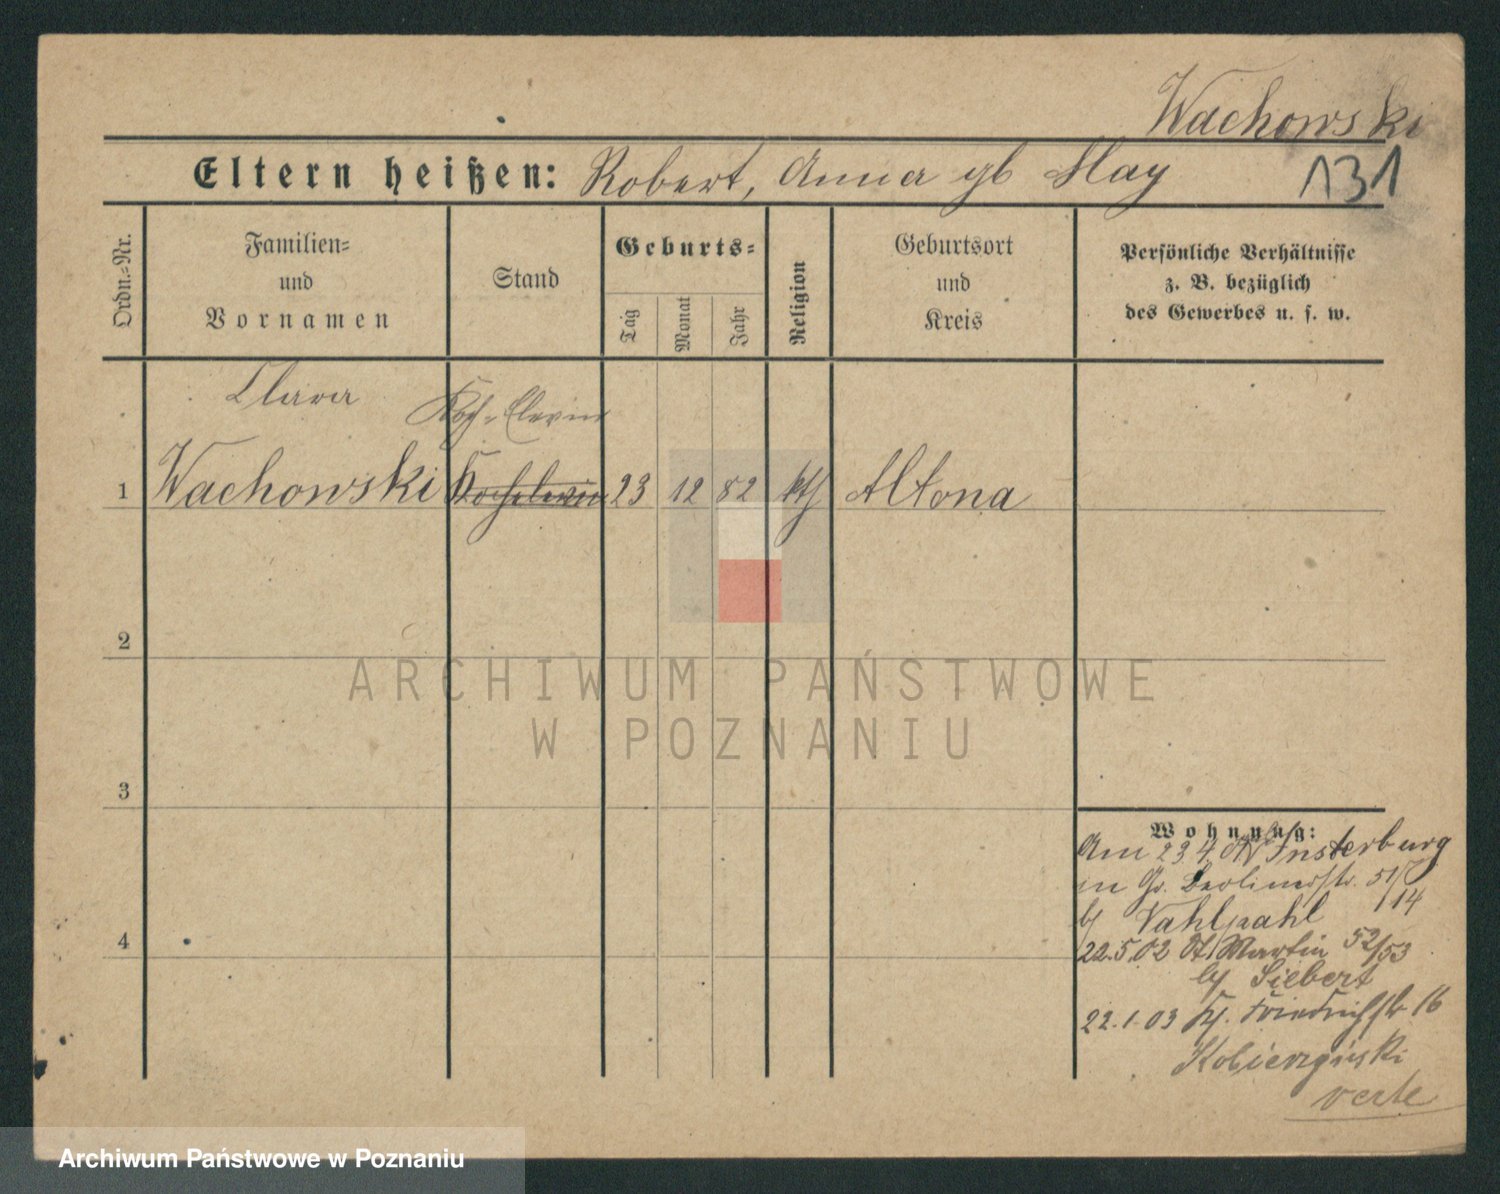 Wachowski
Eltern heißen: Robert, Anna gb May
131
Ordn.=Nr.
Familien=
und
Vornamen
Stand
Geburts=
Tag
Monat
Jahr
Religion
Geburtsort
und
Kreis
Persönliche Verhältnisse
z. B. bezüglich
des Gewerbes u. s. w.
Clara
1 Wachowski 23 12 82 kth Altona
2
3
4
ARCHIWUM PAŃSTWOWE
W POZNANIU
Wohnung:
Am 23 4 Insterburg
in Gr. Berlinerstr. 51/
114
b/
22.5.02 St Martin 52/53
b/ Siebert
22.1.03 Friedrichstr 16
Archiwum Państwowe w Poznaniu